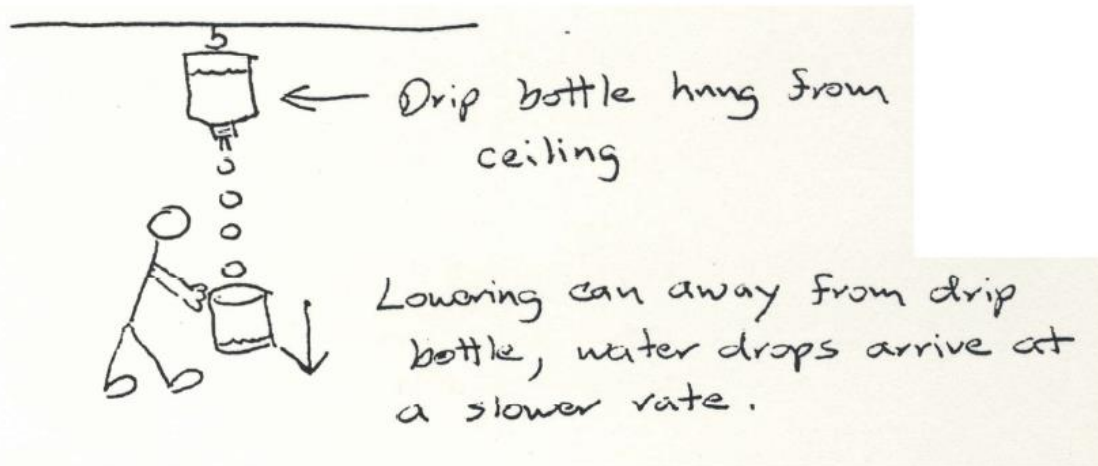 Drip bottle hung from
ceiling
Lowering can away from drip
bottle, water drops arrive at
a slower rate.